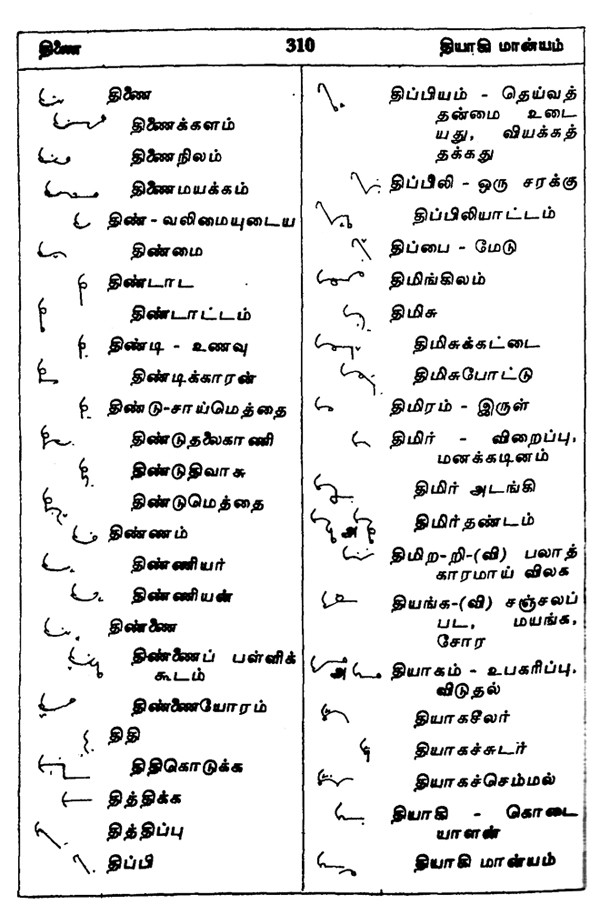 திணை 310 தியாகி மான்யம்
திணை
திணைக்களம்
திணைநிலம்
திணைமயக்கம்
திண் - வலிமையுடைய
திண்மை
திண்டாட
திண்டாட்டம்
திண்டி - உணவு
திண்டிக்காரன்
திண்டு-சாய்மெத்தை
திண்டுதலைகாணி
திண்டுதிவாசு
திண்டுமெத்தை
திண்ணம்
திண்ணியர்
திண்ணியன்
திண்ணை
திண்ணைப் பள்ளிக்
கூடம்
திண்ணையோரம்
திதி
திதிகொடுக்க
தித்திக்க
தித்திப்பு
திப்பி
திப்பியம் - தெய்வத்
தன்மை உடை
யது, வியக்கத்
தக்கது
திப்பிலி - ஒரு சரக்கு
திப்பிலியாட்டம்
திப்பை - மேடு
திமிங்கிலம்
திமிசு
திமிசுக்கட்டை
திமிசுபோட்டு
திமிரம் - இருள்
திமிர் - விறைப்பு,
மனக்கடினம்
திமிர் அடங்கி
அ திமிர்தண்டம்
திமிற-றி-(வி) பலாத்
காரமாய் விலக
தியங்க-(வி) சஞ்சலப்
பட, மயங்க,
சோர
அ தியாகம் - உபகரிப்பு,
விடுதல்
தியாகசீலர்
தியாகச்சுடர்
தியாகச்செம்மல்
தியாகி - கொடை
யாளன்
தியாகி மான்யம்